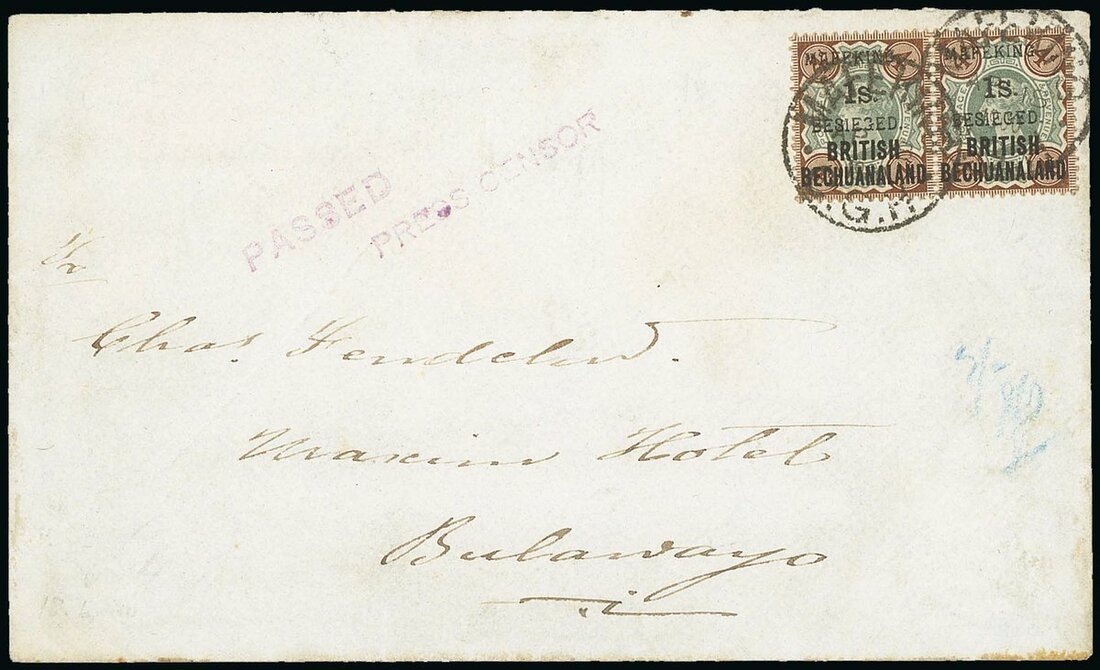 MAFEKING,
1s.
BESIEGED.
BRITISH
BECHUANALAND
MAFEKING,
1s.
BESIEGED.
BRITISH
BECHUANALAND
MAFEKING
C.G.H
PASSED
PRESS CENSOR
Chas. Fendelow.
Maxim Hotel
Bulawayo